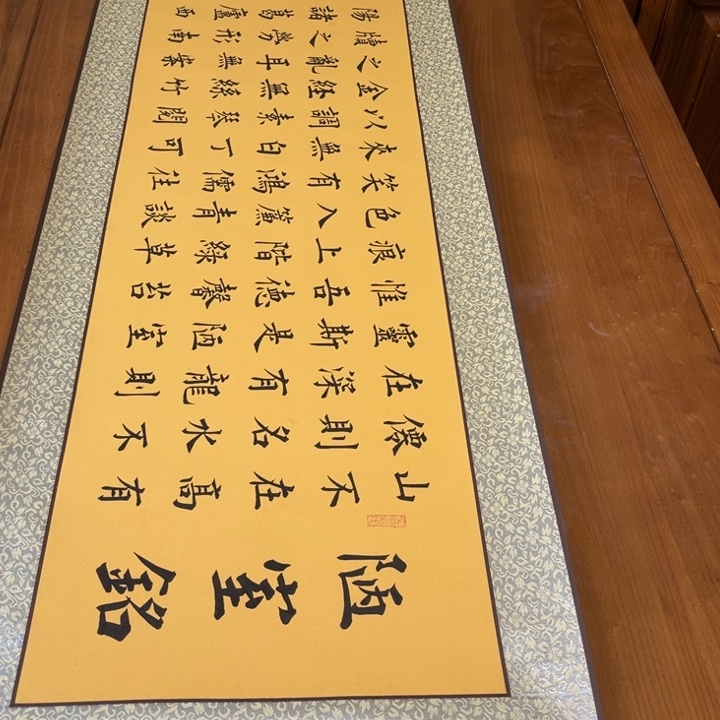 陋室銘
山不在高有
僊則名水不
在深有龍則
靈斯是陋室
惟吾德馨苔
痕上階綠草
色入簾青談
笑有鴻儒往
來無白丁可
以調素琴閱
金經無絲竹
之亂耳無案
牘之勞形南
陽諸葛廬西